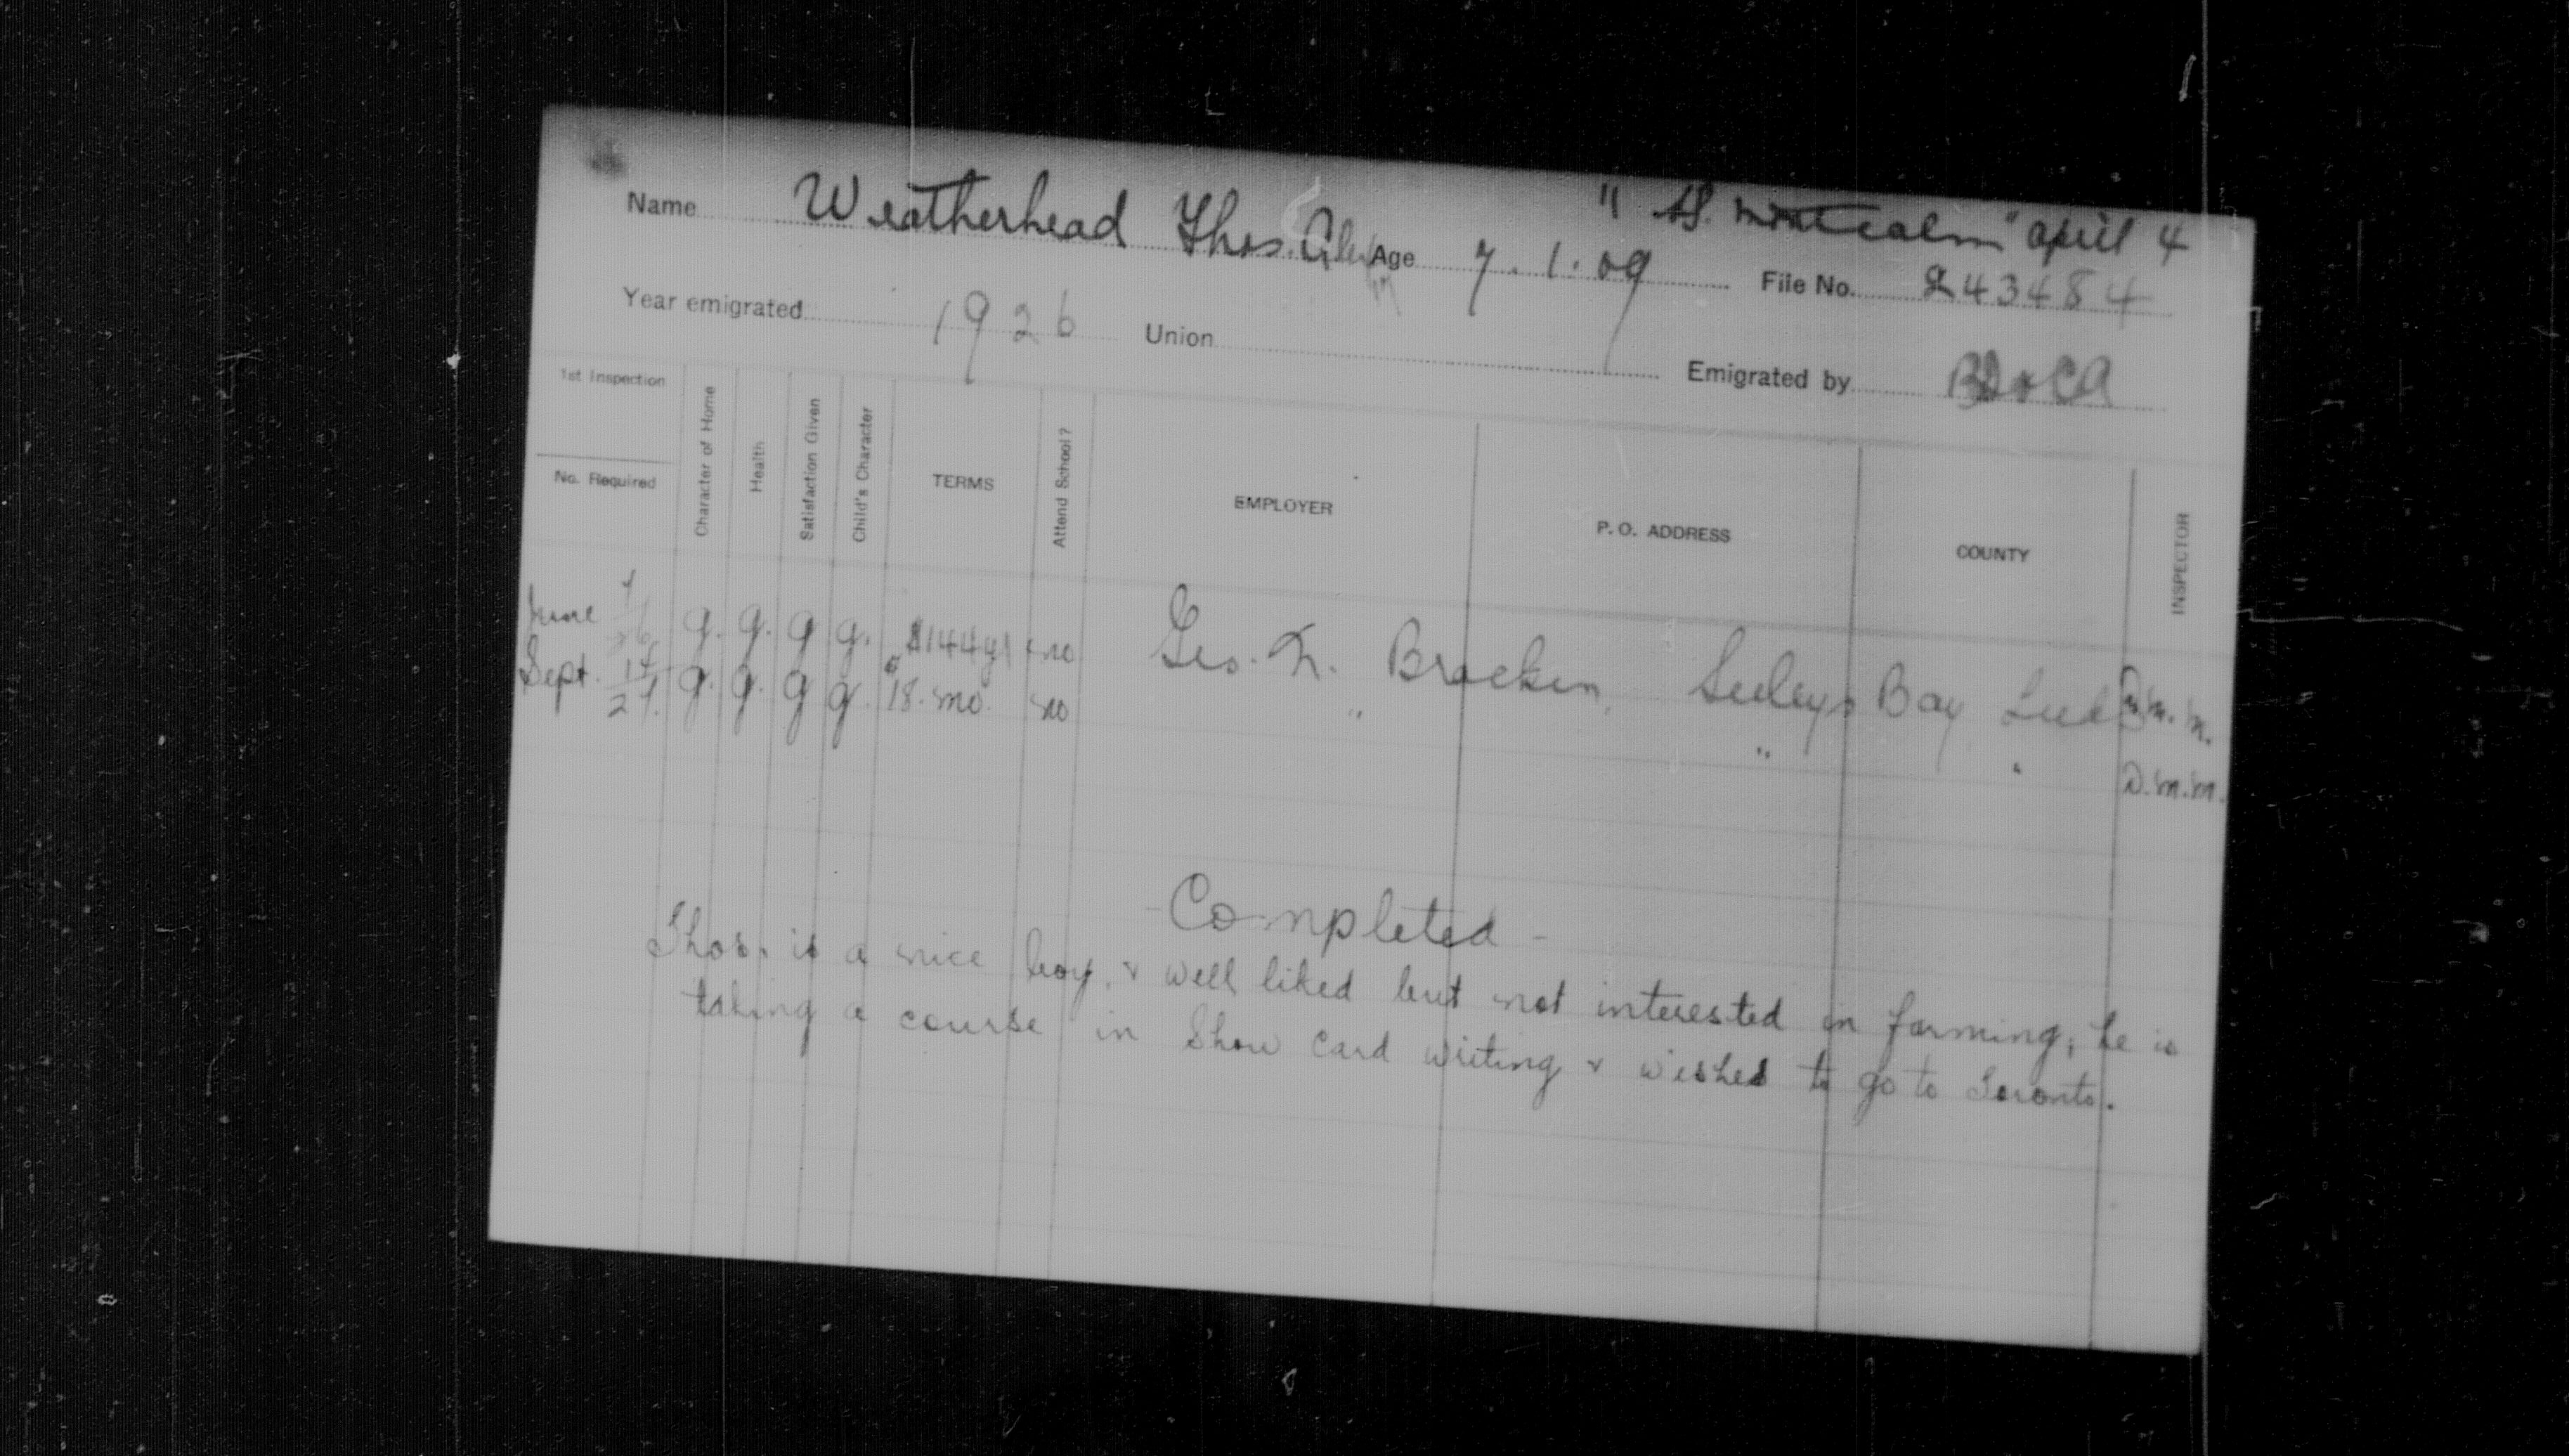 "SS. Montcalm" April 4
Name Weatherhead Thos. Age 7.1.09 File No. 243484
Year emigrated 1926 Union Emigrated by
1st Inspection
No. Required Character of Home Health Satisfaction Given Child's Character TERMS Attend School? EMPLOYER P. O. ADDRESS COUNTY INSPECTOR
June g. g. g g. $144 yr no Geo. N. Bracken, Seeleys Bay Leeds D.M.M.
Sept. 14/27. g. g. g g. 18. mo. no " " " D.M.M.
Completed -
Thos. is a nice boy, & well liked but not interested in farming; he is
taking a course in Show Card writing & wishes to go to Toronto.